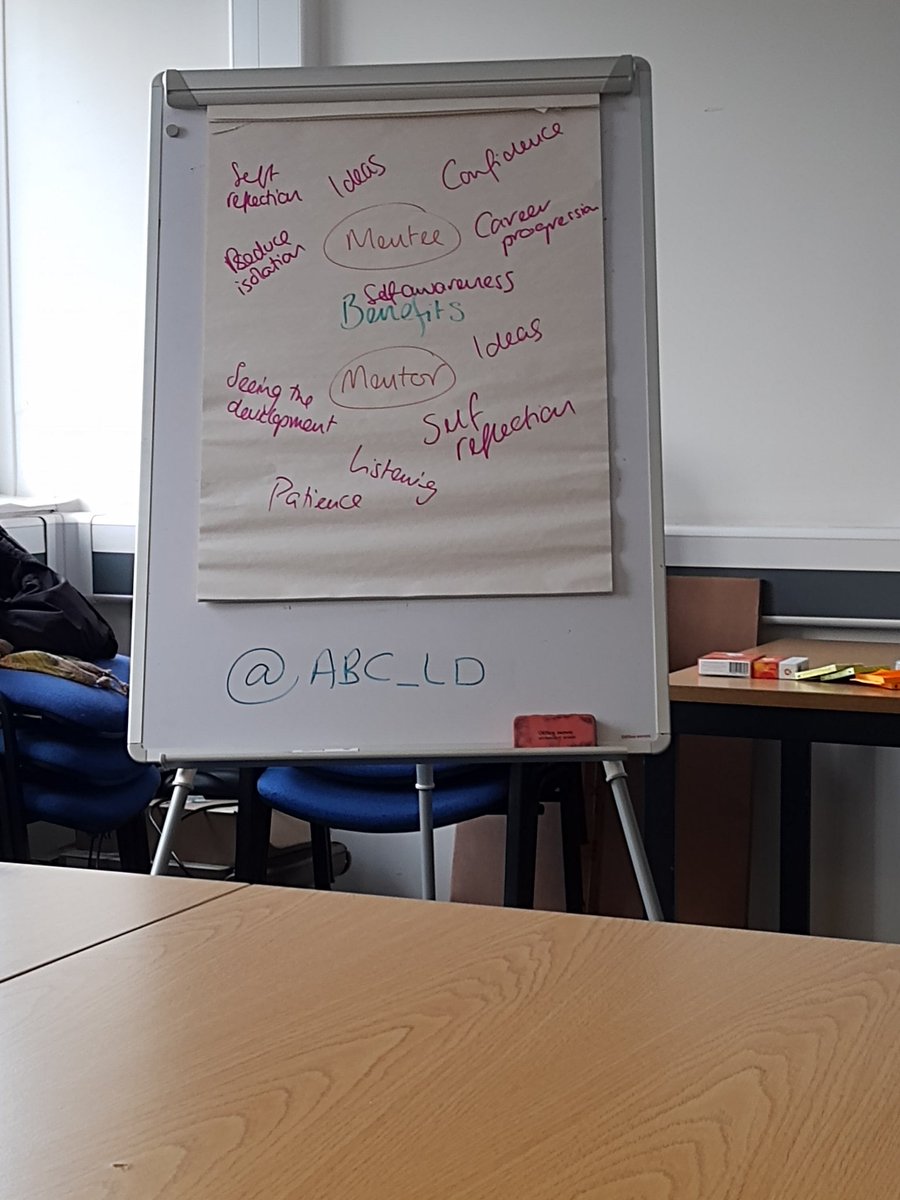 Self
reflection
Ideas
Confidence
Reduce
isolation
Mentee
Career
progression
Self awareness
Benefits
Ideas
Mentor
Seeing the
development
Self
reflection
Listening
Patience
@ABC_LD